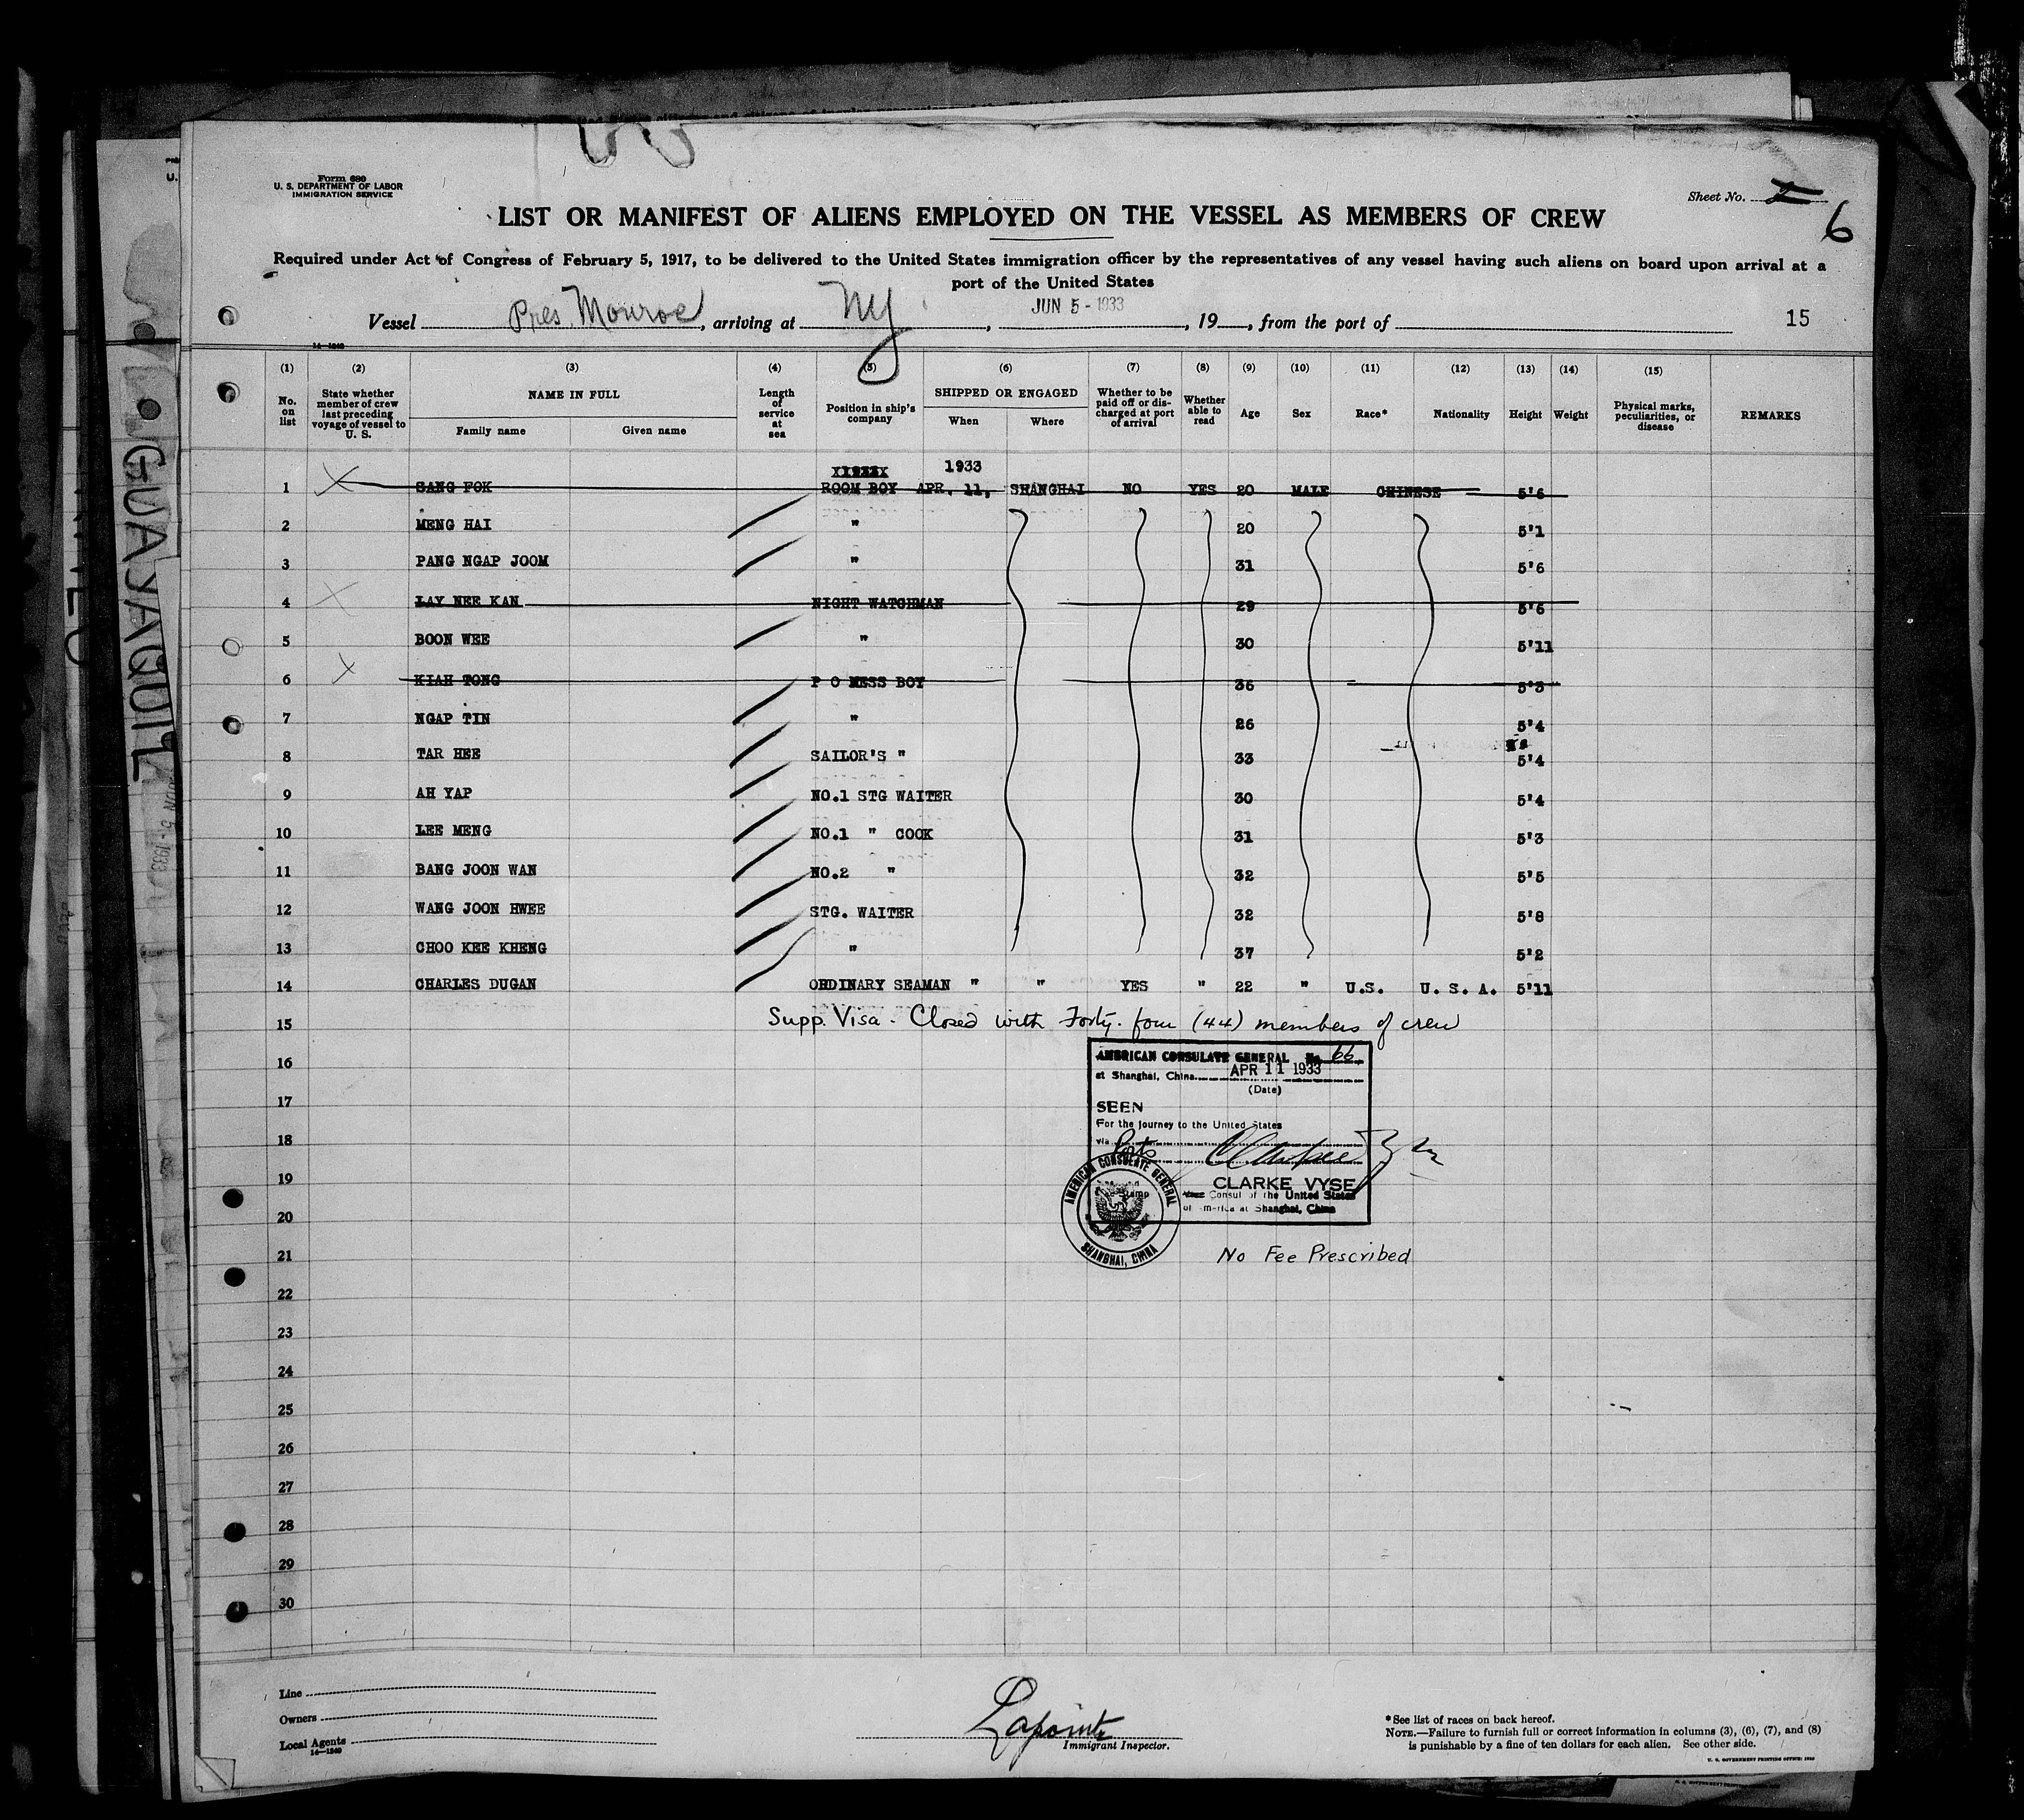 Form 680
U. S. DEPARTMENT OF LABOR
IMMIGRATION SERVICE
Sheet No. 2
6
LIST OR MANIFEST OF ALIENS EMPLOYED ON THE VESSEL AS MEMBERS OF CREW
Required under Act of Congress of February 5, 1917, to be delivered to the United States immigration officer by the representatives of any vessel having such aliens on board upon arrival at a
port of the United States
Vessel Pres. Monroe, arriving at NY, JUN 5 - 1933, 19, from the port of
15
14-1240
(1) (2) (3) (4) (5) (6) (7) (8) (9) (10) (11) (12) (13) (14) (15)
No. on list
State whether member of crew last preceding voyage of vessel to U. S.
NAME IN FULL
Family name
Given name
Length of service at sea
Position in ship's company
SHIPPED OR ENGAGED
When
Where
Whether to be paid off or discharged at port of arrival
Whether able to read
Age
Sex
Race*
Nationality
Height
Weight
Physical marks, peculiarities, or disease
REMARKS
1933
1 SANG FOK ROOM BOY APR. 11, SHANGHAI NO YES 20 MALE CHINESE 5'6
2 MENG HAI " 20 5'1
3 PANG NGAP JOOM " 31 5'6
4 LAY NEE KAN NIGHT WATCHMAN 29 5'6
5 BOON WEE " 30 5'11
6 KIAH TONG P O MESS BOY 36 5'3
7 NGAP TIN " 26 5'4
8 TAR HEE SAILOR'S " 33 5'4
9 AH YAP NO.1 STG WAITER 30 5'4
10 LEE MENG NO.1 " COOK 31 5'3
11 BANG JOON WAN NO.2 " 32 5'5
12 WANG JOON HWEE STG. WAITER 32 5'8
13 CHOO KEE KHENG " 37 5'2
14 CHARLES DUGAN ORDINARY SEAMAN " " YES " 22 " U.S. U. S. A. 5'11
15 Supp. Visa - Closed with Forty-four (44) members of crew
16
17
18
19
20
21
22
23
24
25
26
27
28
29
30
AMERICAN CONSULATE GENERAL No. 66
at Shanghai, China APR 11 1933
(Date)
SEEN
For the journey to the United States
via Ports
CLARKE VYSE
Consul of the United States
of America at Shanghai, China
AMERICAN CONSULATE GENERAL
Stamp
SHANGHAI, CHINA
No Fee Prescribed
Line
Owners
Local Agents
14-1240
Lapointe
Immigrant Inspector.
*See list of races on back hereof.
NOTE.—Failure to furnish full or correct information in columns (3), (6), (7), and (8)
is punishable by a fine of ten dollars for each alien. See other side.
GUAYAQUIL